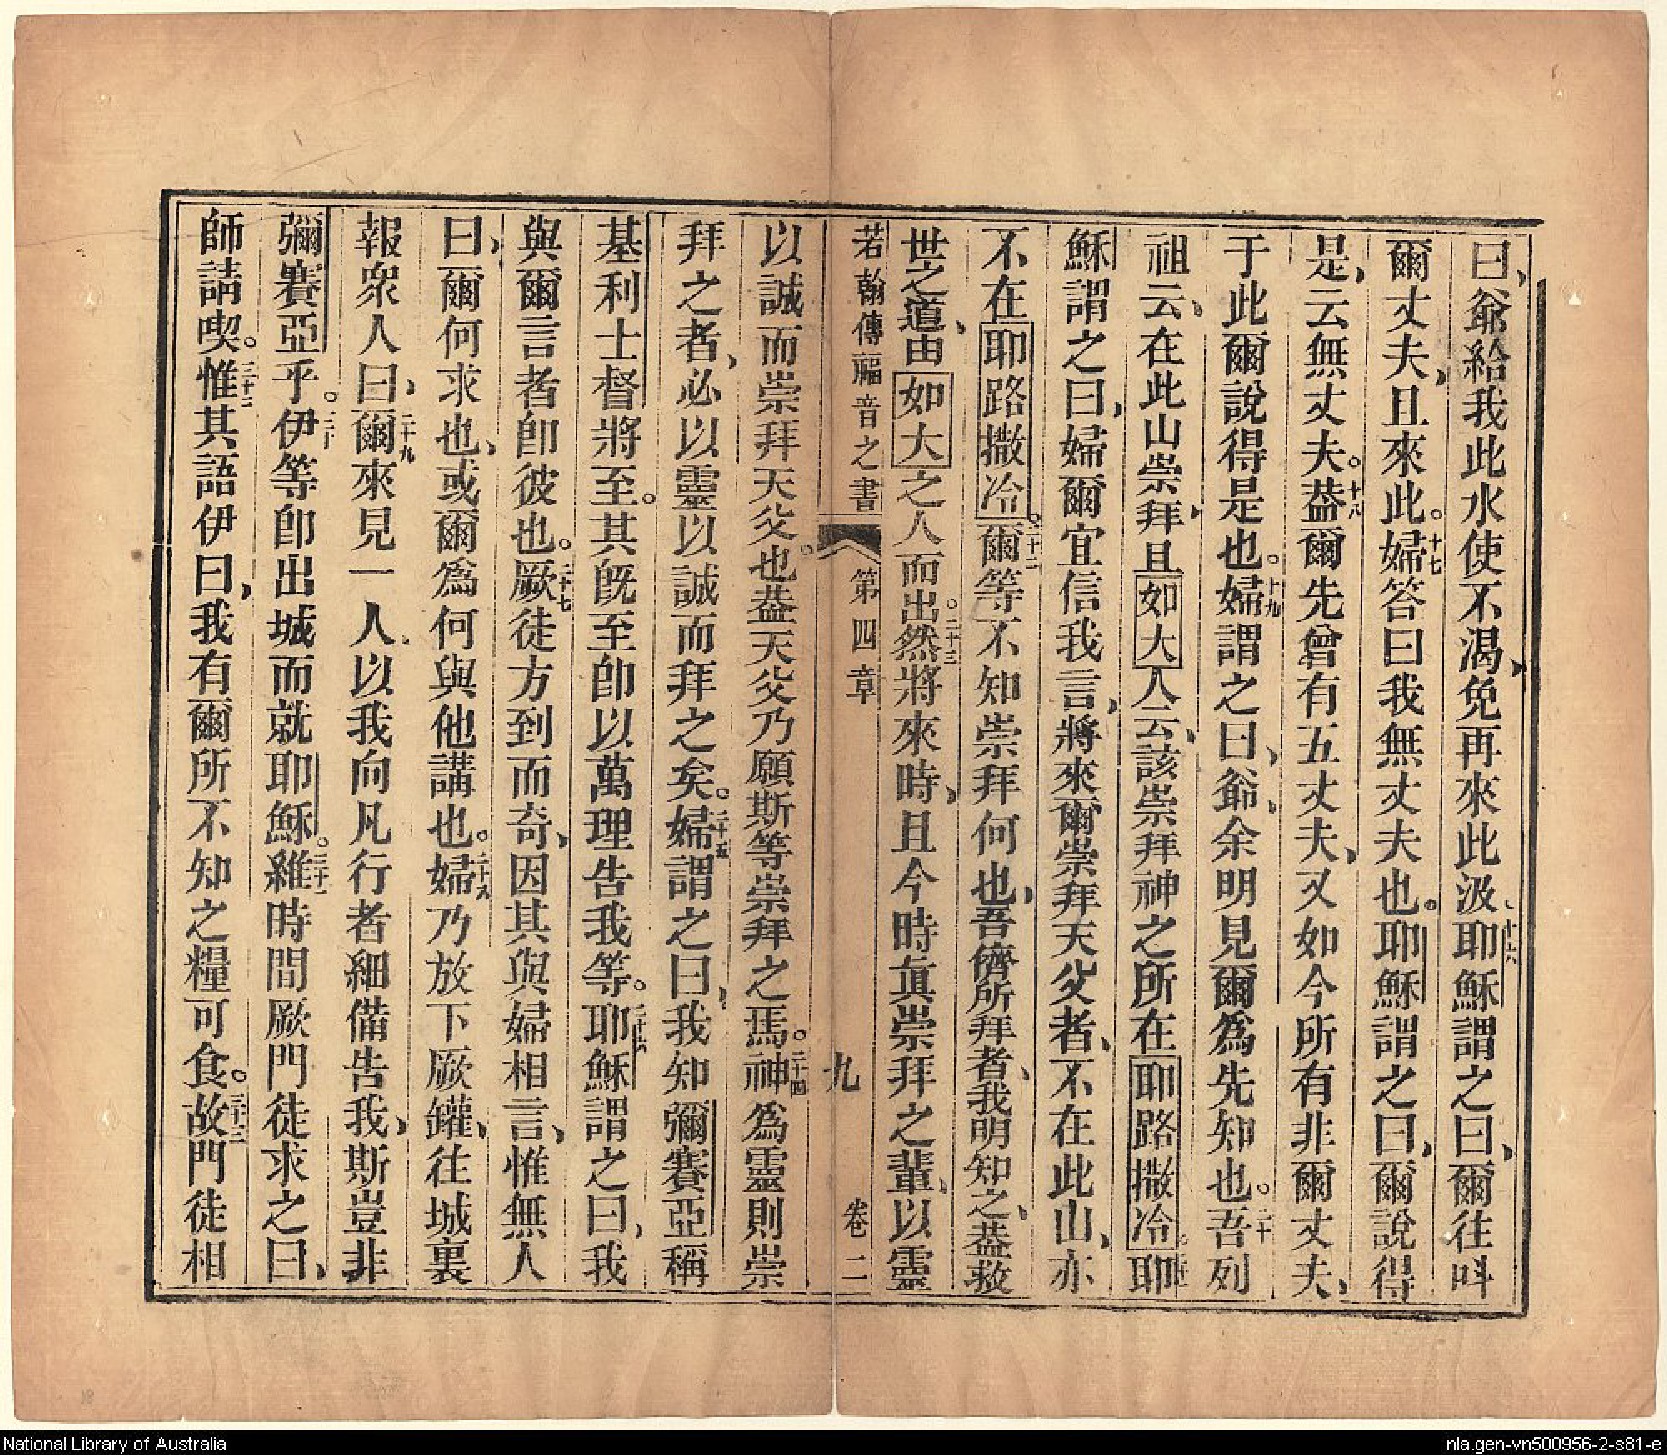 曰、爺給我此水使不渴、免再來此汲、十六耶穌謂之曰、爾往呌
爾丈夫、且來此。十七婦答曰我無丈夫也。耶穌謂之曰、爾說得
是、云無丈夫。十八葢爾先曾有五丈夫、又如今所有非爾丈夫、
于此爾說得是也。十九婦謂之曰、爺、余明見爾爲先知也。二十吾列
祖云、在此山崇拜、且如大人云、該崇拜神之所在耶路撒冷。耶
穌謂之曰、婦爾宜信我言、將來爾崇拜天父者、不在此山、亦
不在耶路撒冷。二十二爾等不知崇拜何也、吾儕所拜者、我明知之、葢救
世之道、由如大之人而出。二十三然將來時、且今時眞崇拜之輩、以靈
若翰傳福音之書 第四章 九 卷二
以誠而崇拜天父也。葢天父乃願斯等崇拜之焉。二十四神爲靈則崇
拜之者、必以靈以誠而拜之矣。二十五婦謂之曰、我知彌賽亞稱
基利士督將至。其旣至卽以萬理告我等。二十六耶穌謂之曰、我
與爾言者卽彼也。二十七厥徒方到而奇、因其與婦相言、惟無人
曰、爾何求也、或爾爲何與他講也。二十八婦乃放下厥罐、往城裏
報衆人曰、二十九爾來見一人、以我向凡行者細備告我、斯豈非
彌賽亞乎。三十伊等卽出城而就耶穌。三十一維時間厥門徒求之曰、
師請喫。三十二惟其語伊曰、我有爾所不知之糧可食。三十三故門徒相
National Library of Australia
nla.gen-vn500956-2-s81-e